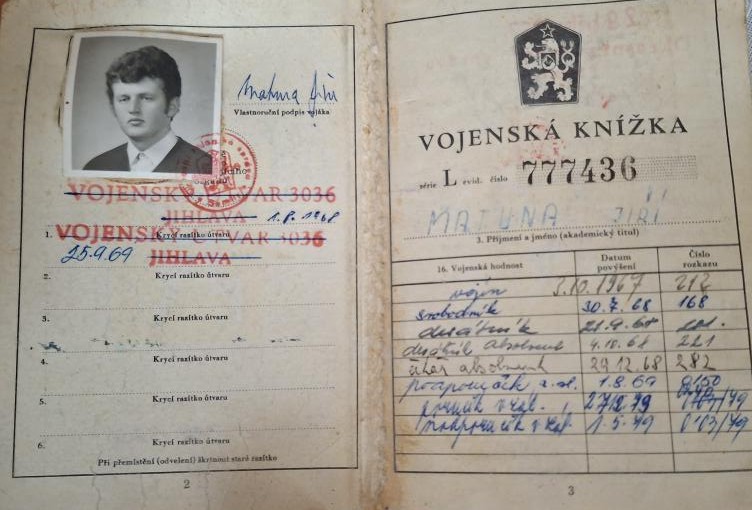 Matuna Jiří
Vlastnoruční podpis vojáka
VOJENSKÝ ÚTVAR 3036
JIHLAVA 1.8.1968
1. VOJENSKÝ ÚTVAR 3036
Krycí razítko útvaru
25.9.69 JIHLAVA
2. Krycí razítko útvaru
3. Krycí razítko útvaru
4. Krycí razítko útvaru
5. Krycí razítko útvaru
6. Krycí razítko útvaru
Při přemístění (odvelení) škrtnouti staré razítko
2
VOJENSKÁ KNÍŽKA
série L evid. číslo 777436
MATUNA JIŘÍ
3. Příjmení a jméno (akademický titul)
16. Vojenská hodnost Datum povýšení Číslo rozkazu
vojín 3.10.1967 212
svobodník 30.7.68 168
desátník 21.9.68
desátník absolvent 4.10.68 221
absolvent 29.12.68 282
podporučík 1.8.69
1.5.79
3